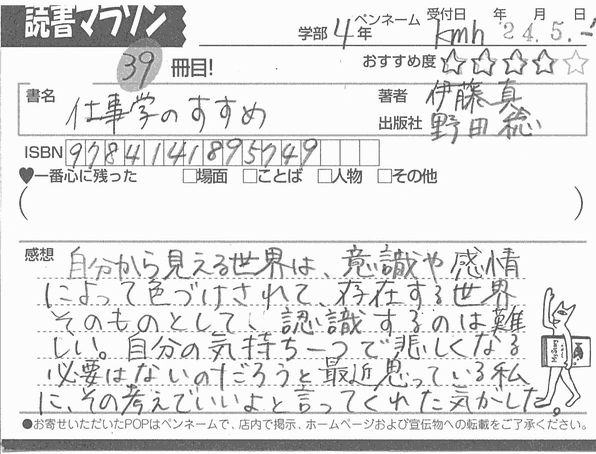 読書マラソン
学部 4年 ペンネーム kmh 受付日 24年 5月 日
39 冊目!
おすすめ度 ★★★★☆
書名 仕事学のすすめ
著者 伊藤真
出版社 野田稔
ISBN 9784141895749
♥一番心に残った □場面 □ことば □人物 □その他
( )
感想 自分から見える世界は、意識や感情
によって色づけされて、存在する世界
そのものとして、認識するのは難
しい。自分の気持ち一つで悲しくなる
必要はないのだろうと最近思っている私
に、その考えでいいよと言ってくれた気がした。
●お寄せいただいたPOPはペンネームで、店内で掲示、ホームページおよび宣伝物への転載をご了承ください。